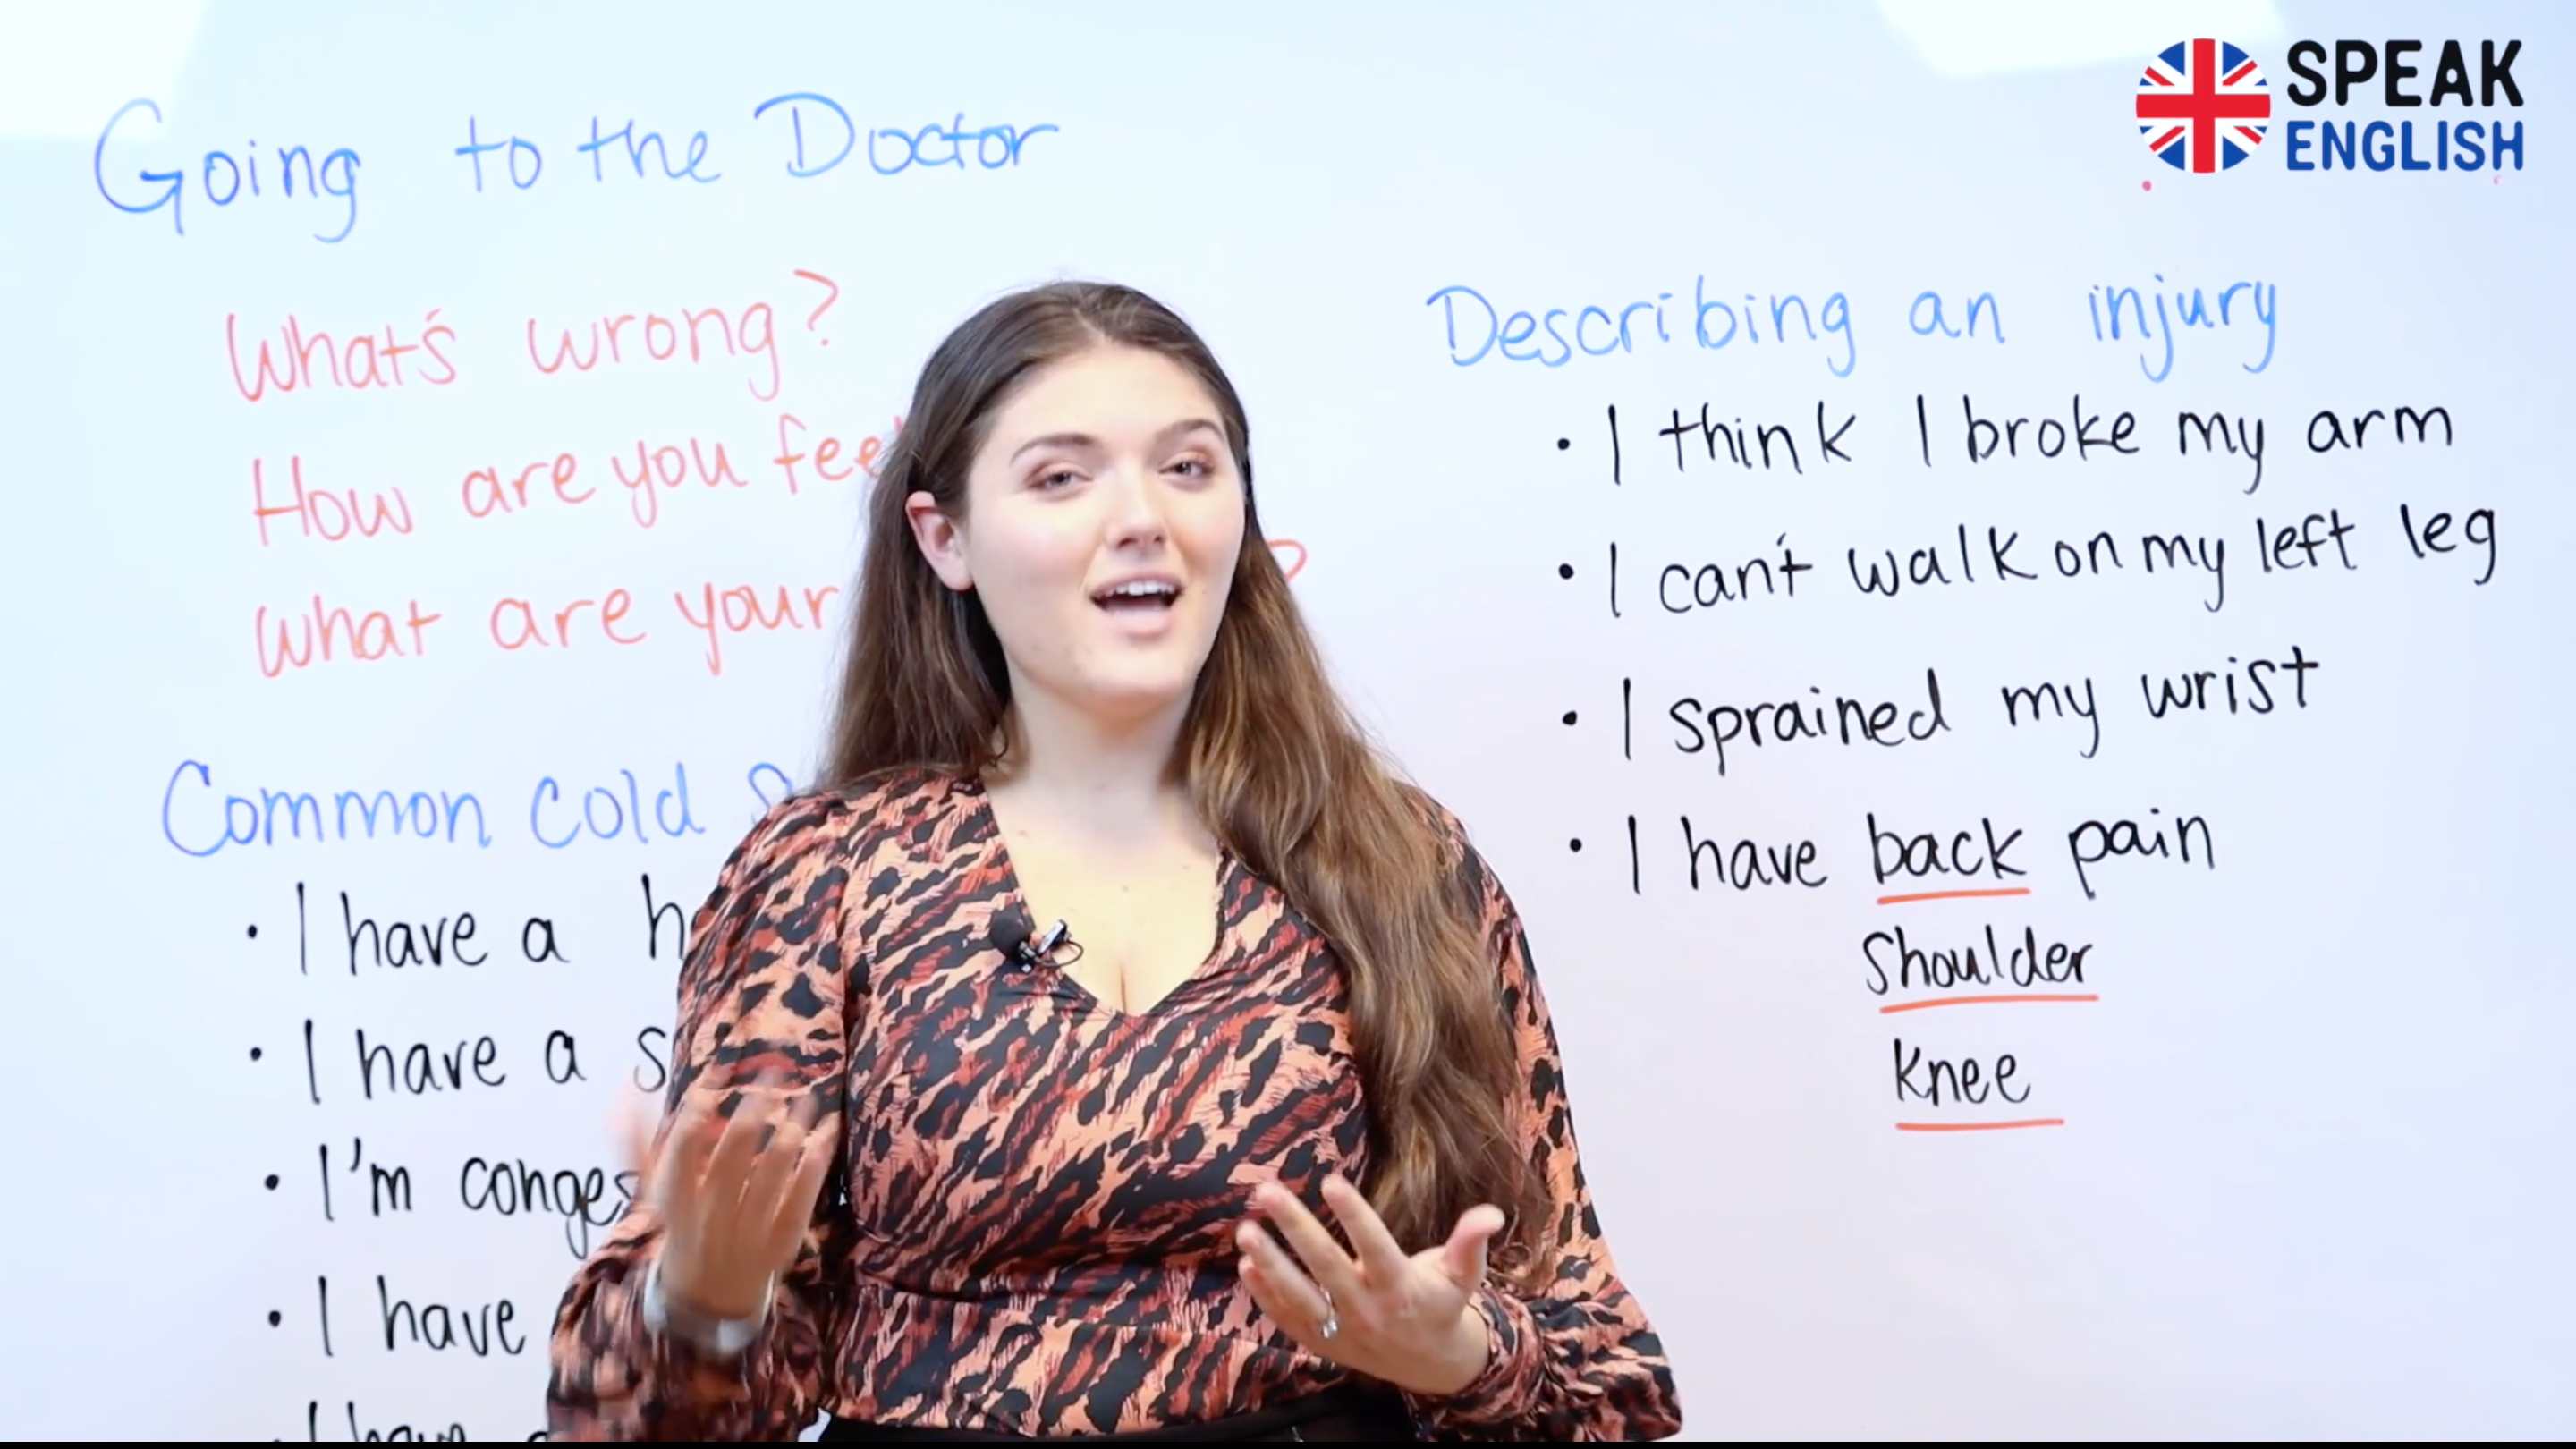 Going to the Doctor
What's wrong?
How are you
What are your
Common cold
• I have a
• I have a
• I'm
• I have
I have
SPEAK
ENGLISH
Describing an injury
• I think I broke my arm
• I can't walk on my left leg
• I sprained my wrist
• I have back pain
shoulder
knee